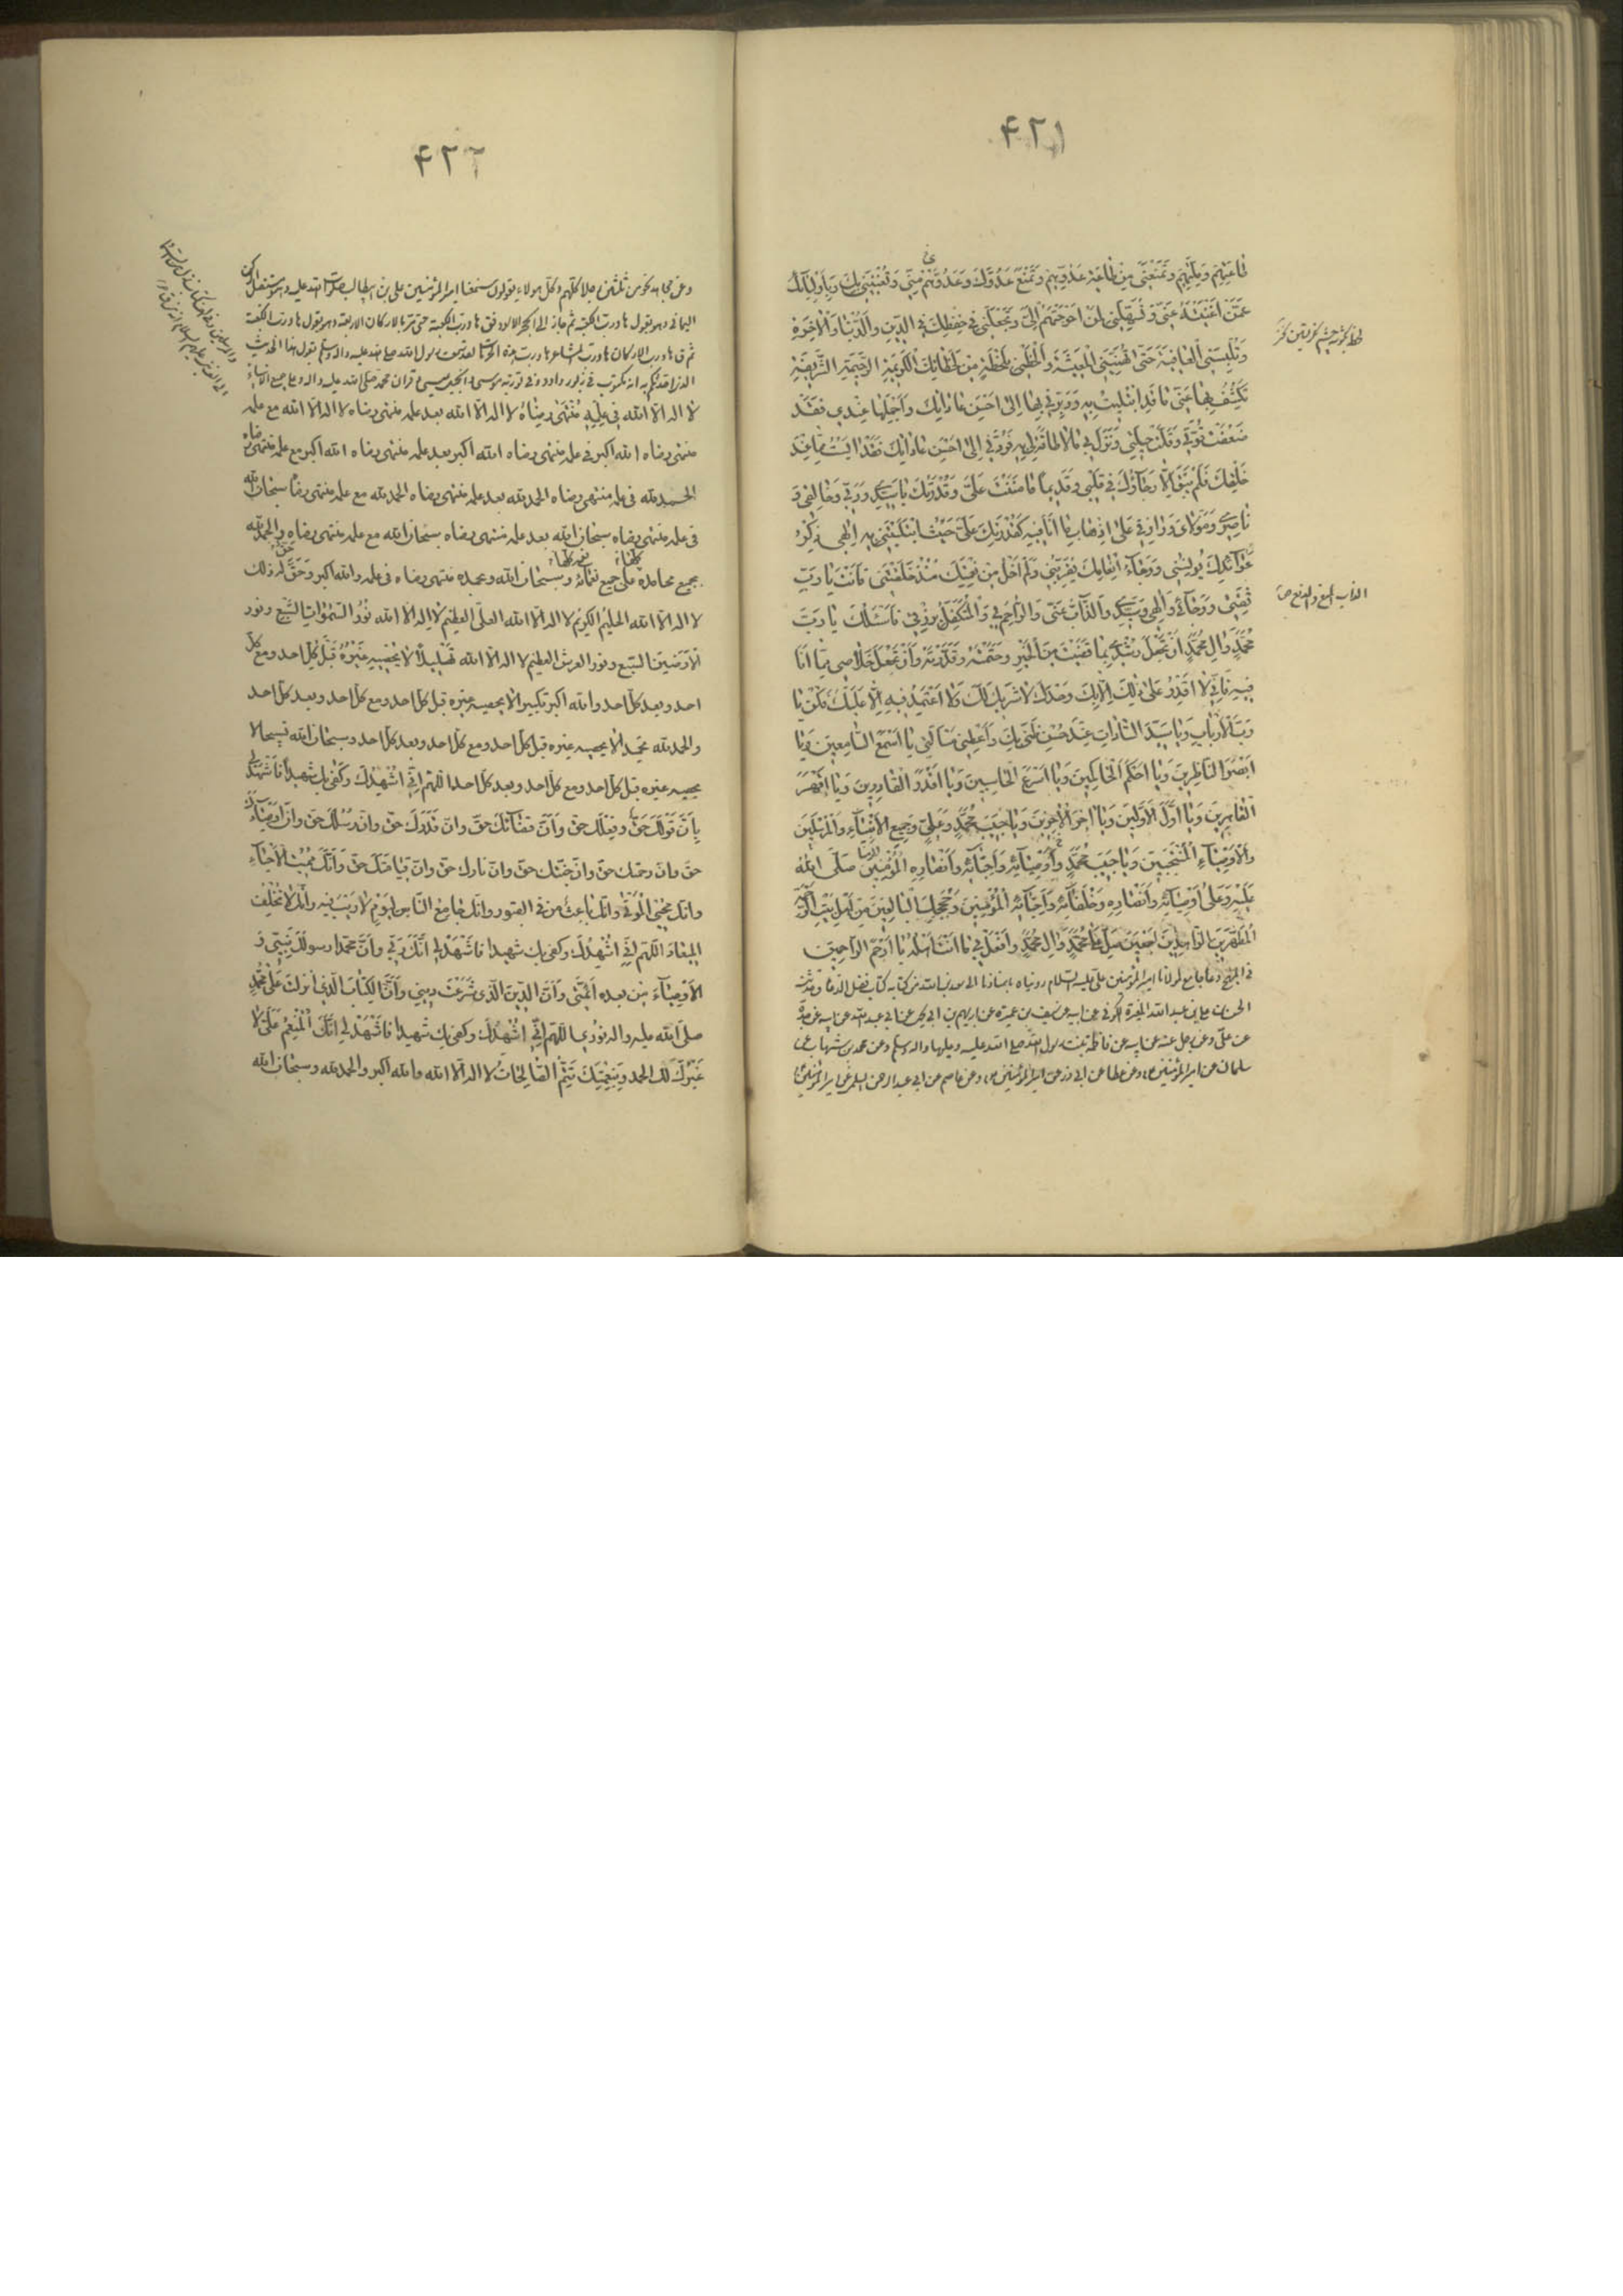 ۴۲۱
طَاعَتِهِمْ وَمِلَّتِهِمْ وَتَمْنَعَنِي مِنْ طَاعَةِ عَدُوِّهِمْ وَتَمْنَعَ عَدُوَّكَ وَعَدُوَّهُمْ مِنِّي وَتُغْنِيَنِي بِكَ وَبِأَوْلِيَائِكَ
عَمَّنْ أَغْنَيْتَهُ عَنِّي وَتُسَهِّلَنِي لِمَنْ أَحْوَجْتَهُمْ إِلَيَّ وَتَجْعَلَنِي فِي حِفْظِكَ فِي الدِّينِ وَالدُّنْيَا وَالْآخِرَةِ
وَتُلْبِسَنِي الْعَافِيَةَ حَتَّى تُهَنِّئَنِي الْمَعِيشَةَ وَالْحَظْنِي بِلَحْظَةٍ مِنْ لَحَظَاتِكَ الْكَرِيمَةِ الرَّحِيمَةِ الشَّرِيفَةِ
تَكْشِفُ بِهَا عَنِّي مَا قَدِ ابْتُلِيتُ بِهِ وَدَبِّرْنِي بِهَا إِلَى أَحْسَنِ عَادَاتِكَ وَأَجْمَلِهَا عِنْدِي فَقَدْ
ضَعُفَتْ قُوَّتِي وَقَلَّتْ حِيلَتِي وَنَزَلَ بِي مَا لَا طَاقَةَ لِي بِهِ فَرُدَّنِي إِلَى أَحْسَنِ عَادَاتِكَ فَقَدْ أَيِسْتُ مِمَّا عِنْدَ
خَلْقِكَ فَلَمْ يَبْقَ إِلَّا رَجَاؤُكَ فِي قَلْبِي وَقَدِيمًا مَا مَنَنْتَ عَلَيَّ وَقُدْرَتُكَ يَا سَيِّدِي وَرَبِّي وَخَالِقِي وَ
نَاصِرِي وَمَوْلَايَ وَرَازِقِي عَلَى إِذْهَابِ مَا أَنَا فِيهِ كَقُدْرَتِكَ عَلَيَّ حَيْثُ ابْتَلَيْتَنِي بِهِ إِلَهِي ذِكْرُ
عَوَائِدِكَ يُونِسُنِي وَرَجَاءُ إِنْعَامِكَ يُقَرِّبُنِي وَلَمْ أَخْلُ مِنْ نِعْمَتِكَ مُنْذُ خَلَقْتَنِي فَأَنْتَ يَا رَبِّ
ثِقَتِي وَرَجَائِي وَإِلَهِي وَسَيِّدِي وَالذَّابُّ عَنِّي وَالرَّاحِمُ بِي وَالْمُتَكَفِّلُ بِرِزْقِي فَأَسْئَلُكَ يَا رَبَّ
مُحَمَّدٍ وَآلِ مُحَمَّدٍ أَنْ تَجْعَلَ رُشْدِي بِمَا قَضَيْتَ مِنَ الْخَيْرِ وَحَتَمْتَهُ وَقَدَّرْتَهُ وَأَنْ تَجْعَلَ خَلَاصِي مِمَّا أَنَا
فِيهِ فَإِنِّي لَا أَقْدِرُ عَلَى ذَلِكَ إِلَّا بِكَ وَحْدَكَ لَا شَرِيكَ لَكَ وَلَا أَعْتَمِدُ فِيهِ إِلَّا عَلَيْكَ فَكُنْ يَا
رَبَّ الْأَرْبَابِ وَيَا سَيِّدَ السَّادَاتِ عِنْدَ حُسْنِ ظَنِّي بِكَ وَأَعْطِنِي مَسْأَلَتِي يَا أَسْمَعَ السَّامِعِينَ وَيَا
أَبْصَرَ النَّاظِرِينَ وَيَا أَحْكَمَ الْحَاكِمِينَ وَيَا أَسْرَعَ الْحَاسِبِينَ وَيَا أَقْدَرَ الْقَادِرِينَ وَيَا أَقْهَرَ
الْقَاهِرِينَ وَيَا أَوَّلَ الْأَوَّلِينَ وَيَا آخِرَ الْآخِرِينَ وَيَا حَبِيبَ مُحَمَّدٍ وَعَلِيٍّ وَجَمِيعِ الْأَنْبِيَاءِ وَالْمُرْسَلِينَ
وَالْأَوْصِيَاءِ الْمُنْتَجَبِينَ وَيَا حَبِيبَ مُحَمَّدٍ وَأَوْصِيَائِهِ وَأَحِبَّائِهِ وَأَنْصَارِهِ الْمُؤْمِنِينَ صَلَّى اللَّهُ
عَلَيْهِ وَعَلَى أَوْصِيَائِهِ وَأَنْصَارِهِ وَخُلَفَائِهِ وَأَحِبَّائِهِ الْمُؤْمِنِينَ وَحُجَجِكَ الْبَالِغِينَ مِنْ أَهْلِ بَيْتِ الرَّحْمَةِ
الْمُطَهَّرِينَ الزَّاهِدِينَ أَجْمَعِينَ صَلِّ عَلَى مُحَمَّدٍ وَآلِ مُحَمَّدٍ وَافْعَلْ بِي مَا أَنْتَ أَهْلُهُ يَا أَرْحَمَ الرَّاحِمِينَ
في المهج دعاء جامع لمولانا أمير المؤمنين علي عليه السلام رويناه باسنادنا الى سعد بن عبد الله من كتابه كتاب فضل الدعاء وحدثنا
الحسن بن علي بن عبد الله المغيرة الكوفي عن ابيه عن سيف بن عميرة عن ابراهيم بن ابي يحيى عن ابي عبد الله عن ابيه عن جده
عن علي وعن رجل عنه عن ابيه عن فاطمة بنت رسول الله صلى الله عليه وعليها واله وسلم وعن محمد بن شهاب عن
سلمان عن امير المؤمنين ع وعن عطا عن ابي ذر عن امير المؤمنين ع وعن عاصم عن ابي عبد الرحمن السلمي عن امير المؤمنين ع
الذاب الدفع والمنع ص
۴۲۲
وعن مجاهد نحو من ثلثين رجلا كلهم وكل هؤلاء يقولون سمعنا امير المؤمنين علي بن ابي طالب صلوات الله عليه وهو مستقبل الركن
اليماني وهو يقول ها ورب الكعبة ثم جاز الى الحجر الاسود فق ها ورب الكعبة حتى مر بالاركان الاربعة وهو يقول ها ورب الكعبة
ثم ق ها ورب الاركان ها ورب المشاعر ها ورب هذه الحرمة لقد سمعت رسول الله صلى الله عليه واله وسلم يقول هذا الحديث
الذي احدثكم به انه مكتوب في زبور داود وفي تورية موسى وانجيل عيسى وقرآن محمد صلى الله عليه واله وعلى جميع الانبياء
لا اله الا الله في علمه منتهى رضاه لا اله الا الله بعد علمه منتهى رضاه لا اله الا الله مع علمه
منتهى رضاه الله اكبر في علمه منتهى رضاه الله اكبر بعد علمه منتهى رضاه الله اكبر مع علمه منتهى رضاه
الحمد لله في علمه منتهى رضاه الحمد لله بعد علمه منتهى رضاه الحمد لله مع علمه منتهى رضاه سبحان الله
في علمه منتهى رضاه سبحان الله بعد علمه منتهى رضاه سبحان الله مع علمه منتهى رضاه والحمد لله
بجميع محامده على جميع نعمائه وسبحان الله وبحمده منتهى رضاه في علمه والله اكبر وحق له ذلك
لا اله الا الله الحليم الكريم لا اله الا الله العلي العظيم لا اله الا الله نور السموات السبع ونور
الارضين السبع ونور العرش العظيم لا اله الا الله تهليلا لا يحصيه غيره قبل كل احد ومع كل
احد وبعد كل احد والله اكبر تكبيرا لا يحصيه غيره قبل كل احد ومع كل احد وبعد كل احد
والحمد لله تحميدا لا يحصيه غيره قبل كل احد ومع كل احد وبعد كل احد وسبحان الله تسبيحا لا
يحصيه غيره قبل كل احد ومع كل احد وبعد كل احد اللهم اني اشهدك وكفى بك شهيدا فاشهد لي
بأن قولك حق وفعلك حق وأن قضائك حق وان قدرك حق وان رسلك حق وان اوصيائك
حق وان رحمتك حق وان جنتك حق وان نارك حق وان قيامتك حق وأنك مميت الأحياء
وانك محيي الموتى وانك باعث من في القبور وانك جامع الناس ليوم لا ريب فيه وانك لا تخلف
الميعاد اللهم اني اشهدك وكفى بك شهيدا فاشهد لي انك ربي وان محمدا رسولك نبيي و
الاوصياء من بعده ائمتي وان الدين الذي شرعت ديني وان الكتاب الذي انزلت على محمد
صلى الله عليه واله نوري اللهم اني اشهدك وكفى بك شهيدا فاشهد لي انك المنعم علي لا
غيرك لك الحمد وبنعمتك تتم الصالحات لا اله الا الله والله اكبر والحمد لله وسبحان الله